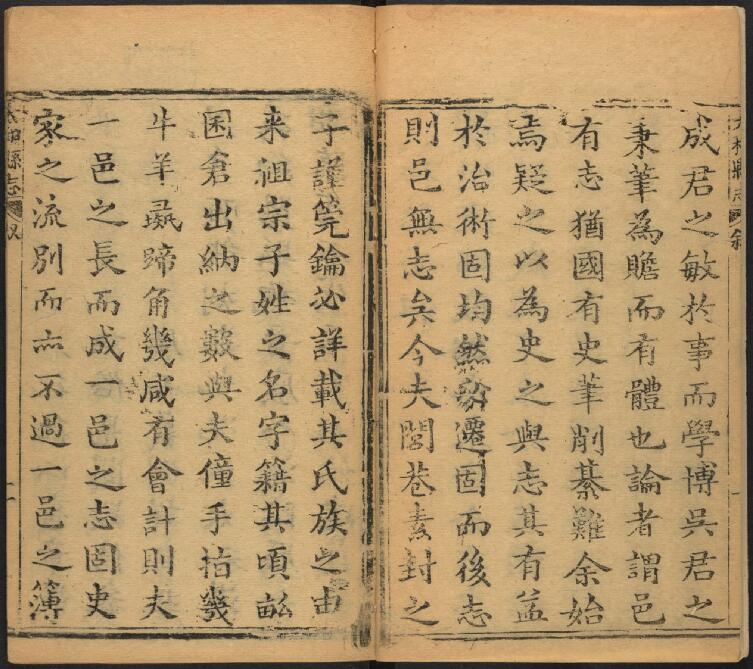 成君之敏於事而學博吳君之
秉筆為贍而有體也論者謂邑
有志猶國有史筆削綦難余始
焉疑之以為史之與志其有益
於治術固均然遷固而後志
則邑無志矣今夫閭巷素封之
子謹筦鑰必詳載其氏族之由
来祖宗子姓之名字籍其頃畝
囷倉出納之數與夫僮手指幾
牛羊彘蹄角幾咸有會計則夫
一邑之長而成一邑之志固史
家之流別而亦不過一邑之簿